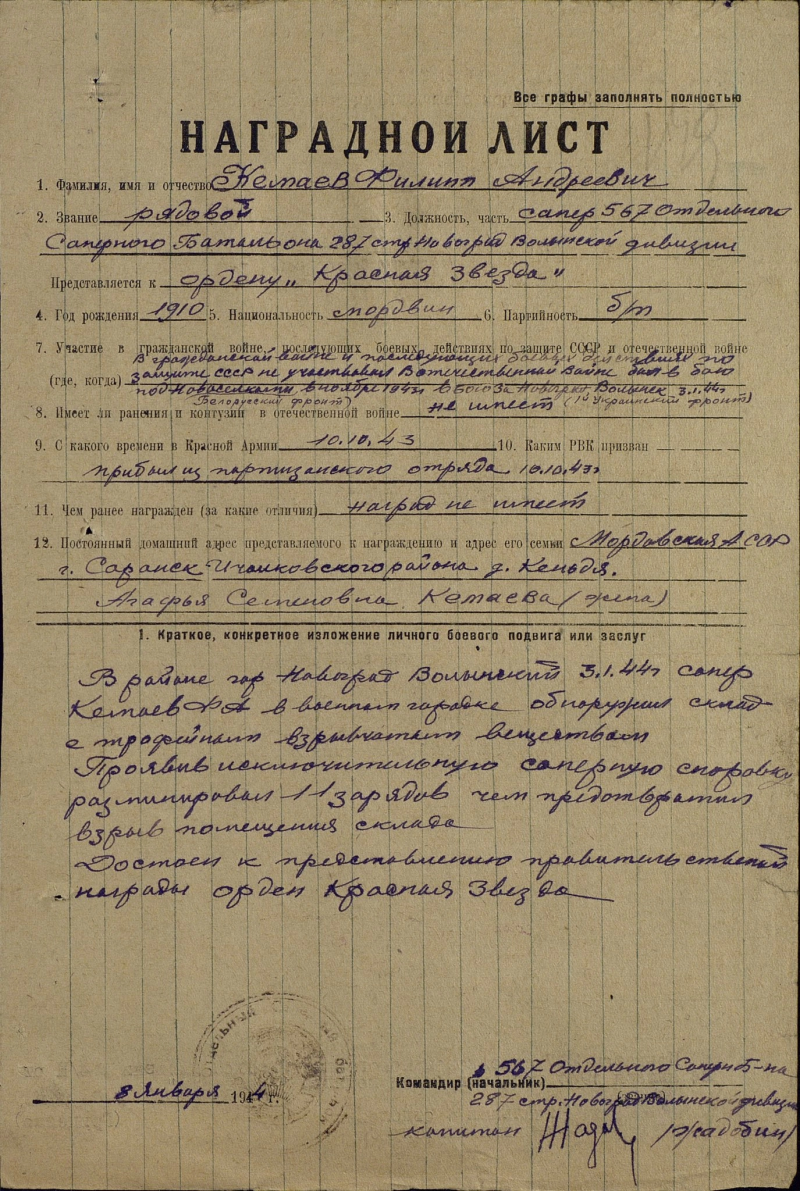 Все графы заполнять полностью
НАГРАДНОЙ ЛИСТ
1. Фамилия, имя и отчество Кемаев Филипп Андреевич
2. Звание рядовой 3. Должность, часть сапер 567 Отдельного
Саперного Батальона 287 стр. Новоград Волынской дивизии
Представляется к ордену „Красная Звезда"
4. Год рождения 1910 5. Национальность мордвин 6. Партийность б/п
7. Участие в гражданской войне, последующих боевых действиях по защите СССР и отечественной войне
В гражданской войне и последующих боевых действиях по
(где, когда) защите СССР не участвовал В отечественной войне был в бою
под Новоселками в ноябре 1943г в бою за Новоград Волынск 3.1.44г
(Белорусский фронт) (1й Украинский фронт)
8. Имеет ли ранения и контузии в отечественной войне не имеет
9. С какого времени в Красной Армии 10.10.43 10. Каким РВК призван
прибыл из партизанского отряда 10.10.43г
11. Чем ранее награжден (за какие отличия) наград не имеет
12. Постоянный домашний адрес представляемого к награждению и адрес его семьи Мордовская АССР
г. Саранск Ичалковского района д. Кендя.
Агафья Семеновна Кемаева (жена)
1. Краткое, конкретное изложение личного боевого подвига или заслуг
В районе гор Новоград Волынский 3.1.44г сапер
Кемаев ФА в военном городке обнаружил склад
с трофейным взрывчатым веществом
Проявив исключительную саперную сноровку
разминировал 11 зарядов чем предотвратил
взрыв помещения склада
Достоен к представлению правительственной
награды орден Красная Звезда
567 Отдельного Саперн б-на
Командир (начальник)
8 Января 1944 г.
287 стр. Новоград Волынской дивизии
капитан /Жадобин/